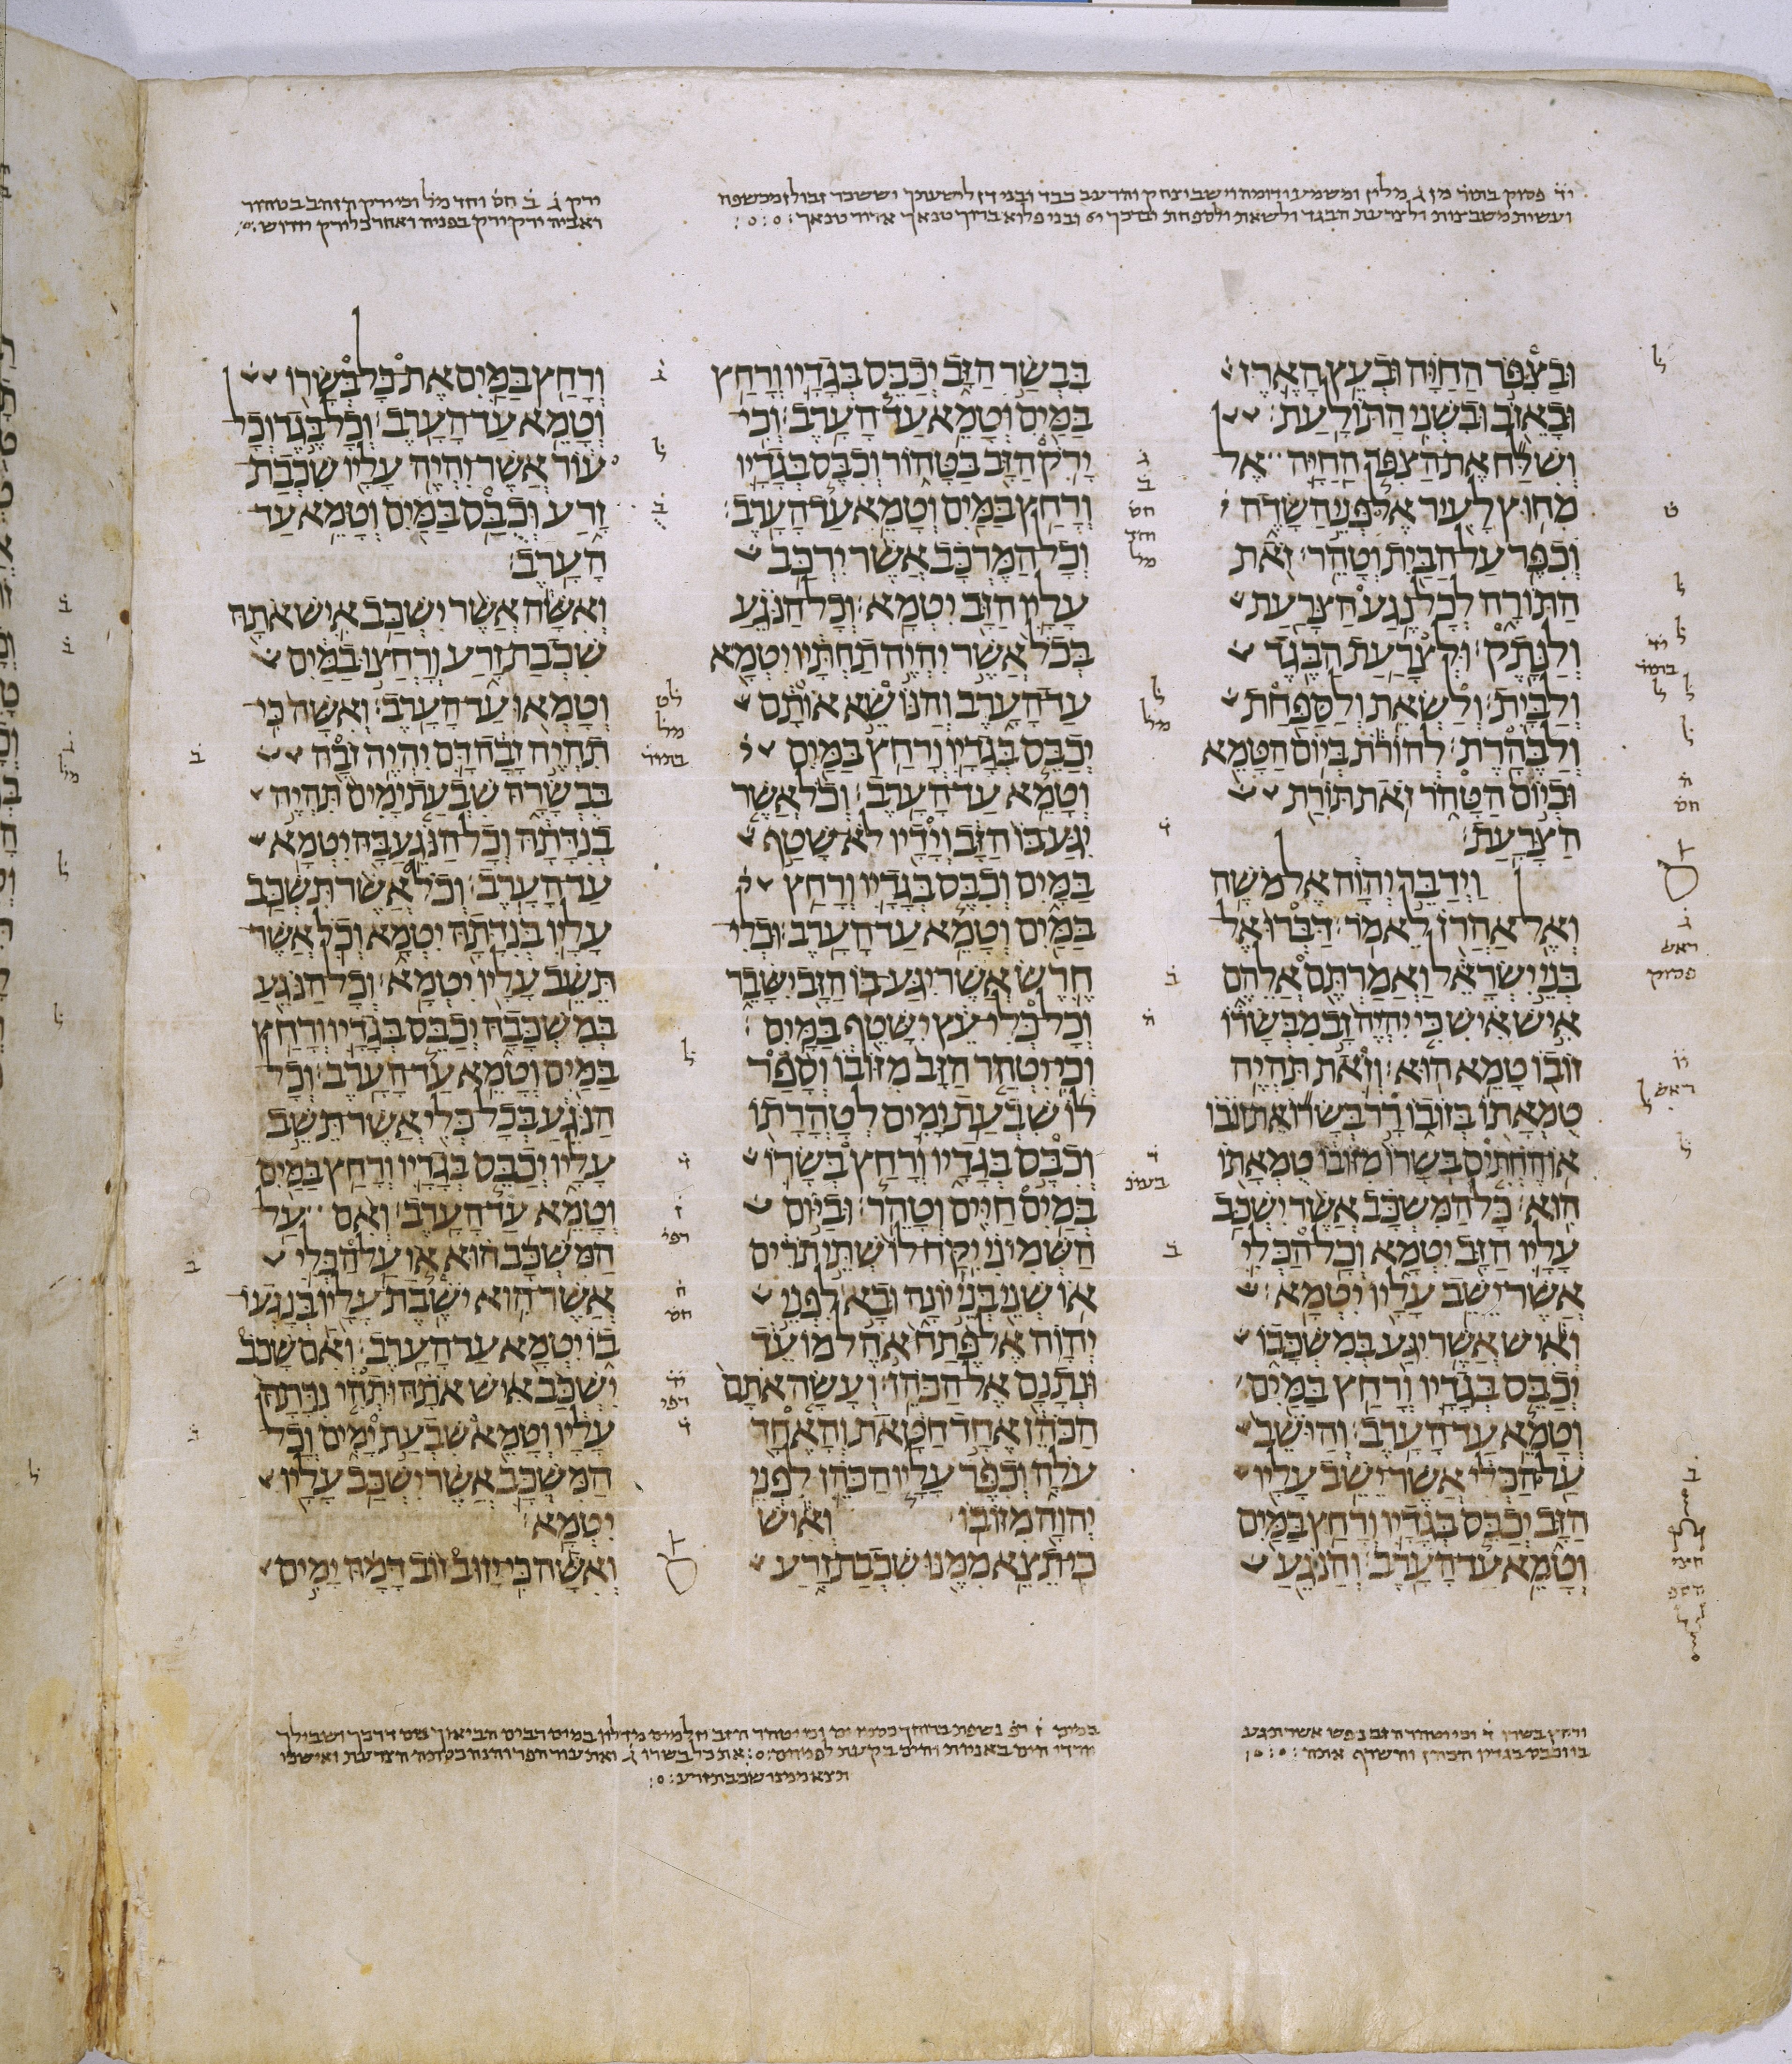 יד פסוק בתור מן ג מלין ומשמע ודומה וישב יצחק
ולצרעת הבגד ולשאת ולספחת
וּבַצִּפֹּר הַחַיָּה וּבְעֵץ הָאֶרֶז
וּבָאֵזֹב וּבִשְׁנִי הַתּוֹלָעַת׃
וְשִׁלַּח אֶת הַצִּפֹּר הַחַיָּה אֶל
מִחוּץ לָעִיר אֶל פְּנֵי הַשָּׂדֶה
וְכִפֶּר עַל הַבַּיִת וְטָהֵר׃ זֹאת
הַתּוֹרָה לְכָל נֶגַע הַצָּרַעַת
וְלַנָּתֶק׃ וּלְצָרַעַת הַבֶּגֶד
וְלַבָּיִת׃ וְלַשְׂאֵת וְלַסַּפַּחַת
וְלַבֶּהָרֶת׃ לְהוֹרֹת בְּיוֹם הַטָּמֵא
וּבְיוֹם הַטָּהֹר זֹאת תּוֹרַת
הַצָּרָעַת׃
וַיְדַבֵּר יְהוָה אֶל מֹשֶׁה
וְאֶל אַהֲרֹן לֵאמֹר׃ דַּבְּרוּ אֶל
בְּנֵי יִשְׂרָאֵל וַאֲמַרְתֶּם אֲלֵהֶם
אִישׁ אִישׁ כִּי יִהְיֶה זָב מִבְּשָׂרוֹ
זוֹבוֹ טָמֵא הוּא׃ וְזֹאת תִּהְיֶה
טֻמְאָתוֹ בְּזוֹבוֹ רָר בְּשָׂרוֹ אֶת זוֹבוֹ
אוֹ הֶחְתִּים בְּשָׂרוֹ מִזּוֹבוֹ טֻמְאָתוֹ
הִוא׃ כָּל הַמִּשְׁכָּב אֲשֶׁר יִשְׁכַּב
עָלָיו הַזָּב יִטְמָא וְכָל הַכְּלִי
אֲשֶׁר יֵשֵׁב עָלָיו יִטְמָא׃
וְאִישׁ אֲשֶׁר יִגַּע בְּמִשְׁכָּבוֹ
יְכַבֵּס בְּגָדָיו וְרָחַץ בַּמַּיִם
וְטָמֵא עַד הָעָרֶב׃ וְהַיֹּשֵׁב
עַל הַכְּלִי אֲשֶׁר יֵשֵׁב עָלָיו
הַזָּב יְכַבֵּס בְּגָדָיו וְרָחַץ בַּמַּיִם
וְטָמֵא עַד הָעָרֶב׃ וְהַנֹּגֵעַ
בִּבְשַׂר הַזָּב יְכַבֵּס בְּגָדָיו וְרָחַץ
בַּמַּיִם וְטָמֵא עַד הָעָרֶב׃ וְכִי
יָרֹק הַזָּב בַּטָּהוֹר וְכִבֶּס בְּגָדָיו
וְרָחַץ בַּמַּיִם וְטָמֵא עַד הָעָרֶב׃
וְכָל הַמֶּרְכָּב אֲשֶׁר יִרְכַּב
עָלָיו הַזָּב יִטְמָא׃ וְכָל הַנֹּגֵעַ
בְּכֹל אֲשֶׁר יִהְיֶה תַחְתָּיו יִטְמָא
עַד הָעָרֶב וְהַנּוֹשֵׂא אוֹתָם
יְכַבֵּס בְּגָדָיו וְרָחַץ בַּמַּיִם
וְטָמֵא עַד הָעָרֶב׃ וְכֹל אֲשֶׁר
יִגַּע בּוֹ הַזָּב וְיָדָיו לֹא שָׁטַף
בַּמָּיִם וְכִבֶּס בְּגָדָיו וְרָחַץ
בַּמַּיִם וְטָמֵא עַד הָעָרֶב׃ וּכְלִי
חֶרֶשׂ אֲשֶׁר יִגַּע בּוֹ הַזָּב יִשָּׁבֵר
וְכָל כְּלִי עֵץ יִשָּׁטֵף בַּמָּיִם׃
וְכִי יִטְהַר הַזָּב מִזּוֹבוֹ וְסָפַר
לוֹ שִׁבְעַת יָמִים לְטָהֳרָתוֹ
וְכִבֶּס בְּגָדָיו וְרָחַץ בְּשָׂרוֹ
בְּמַיִם חַיִּים וְטָהֵר׃ וּבַיּוֹם
הַשְּׁמִינִי יִקַּח לוֹ שְׁתֵּי תֹרִים
אוֹ שְׁנֵי בְּנֵי יוֹנָה וּבָא לִפְנֵי
יְהוָה אֶל פֶּתַח אֹהֶל מוֹעֵד
וּנְתָנָם אֶל הַכֹּהֵן׃ וְעָשָׂה אֹתָם
הַכֹּהֵן אֶחָד חַטָּאת וְהָאֶחָד
עֹלָה וְכִפֶּר עָלָיו הַכֹּהֵן לִפְנֵי
יְהוָה מִזּוֹבוֹ׃ וְאִישׁ
כִּי תֵצֵא מִמֶּנּוּ שִׁכְבַת זָרַע
וְרָחַץ בַּמַּיִם אֶת כָּל בְּשָׂרוֹ
וְטָמֵא עַד הָעָרֶב׃ וְכָל בֶּגֶד וְכָל
עוֹר אֲשֶׁר יִהְיֶה עָלָיו שִׁכְבַת
זָרַע וְכֻבַּס בַּמַּיִם וְטָמֵא עַד
הָעָרֶב׃
וְאִשָּׁה אֲשֶׁר יִשְׁכַּב אִישׁ אֹתָהּ
שִׁכְבַת זָרַע וְרָחֲצוּ בַמַּיִם
וְטָמְאוּ עַד הָעָרֶב׃ וְאִשָּׁה כִּי
תִהְיֶה זָבָה דָּם יִהְיֶה זֹבָהּ
בִּבְשָׂרָהּ שִׁבְעַת יָמִים תִּהְיֶה
בְנִדָּתָהּ וְכָל הַנֹּגֵעַ בָּהּ יִטְמָא
עַד הָעָרֶב׃ וְכֹל אֲשֶׁר תִּשְׁכַּב
עָלָיו בְּנִדָּתָהּ יִטְמָא וְכֹל אֲשֶׁר
תֵּשֵׁב עָלָיו יִטְמָא׃ וְכָל הַנֹּגֵעַ
בְּמִשְׁכָּבָהּ יְכַבֵּס בְּגָדָיו וְרָחַץ
בַּמַּיִם וְטָמֵא עַד הָעָרֶב׃ וְכָל
הַנֹּגֵעַ בְּכָל כְּלִי אֲשֶׁר תֵּשֵׁב
עָלָיו יְכַבֵּס בְּגָדָיו וְרָחַץ בַּמַּיִם
וְטָמֵא עַד הָעָרֶב׃ וְאִם עַל
הַמִּשְׁכָּב הוּא אוֹ עַל הַכְּלִי
אֲשֶׁר הִוא יֹשֶׁבֶת עָלָיו בְּנָגְעוֹ
בוֹ יִטְמָא עַד הָעָרֶב׃ וְאִם שָׁכֹב
יִשְׁכַּב אִישׁ אֹתָהּ וּתְהִי נִדָּתָהּ
עָלָיו וְטָמֵא שִׁבְעַת יָמִים וְכָל
הַמִּשְׁכָּב אֲשֶׁר יִשְׁכַּב עָלָיו
יִטְמָא׃
וְאִשָּׁה כִּי יָזוּב זוֹב דָּמָהּ יָמִים
ורחץ בשרו ד וכי יטהר הזב נפש אשר תגע
בו וכבס בגדיו הכהן והשרף אתה
תצא ממנו שכבת זרע